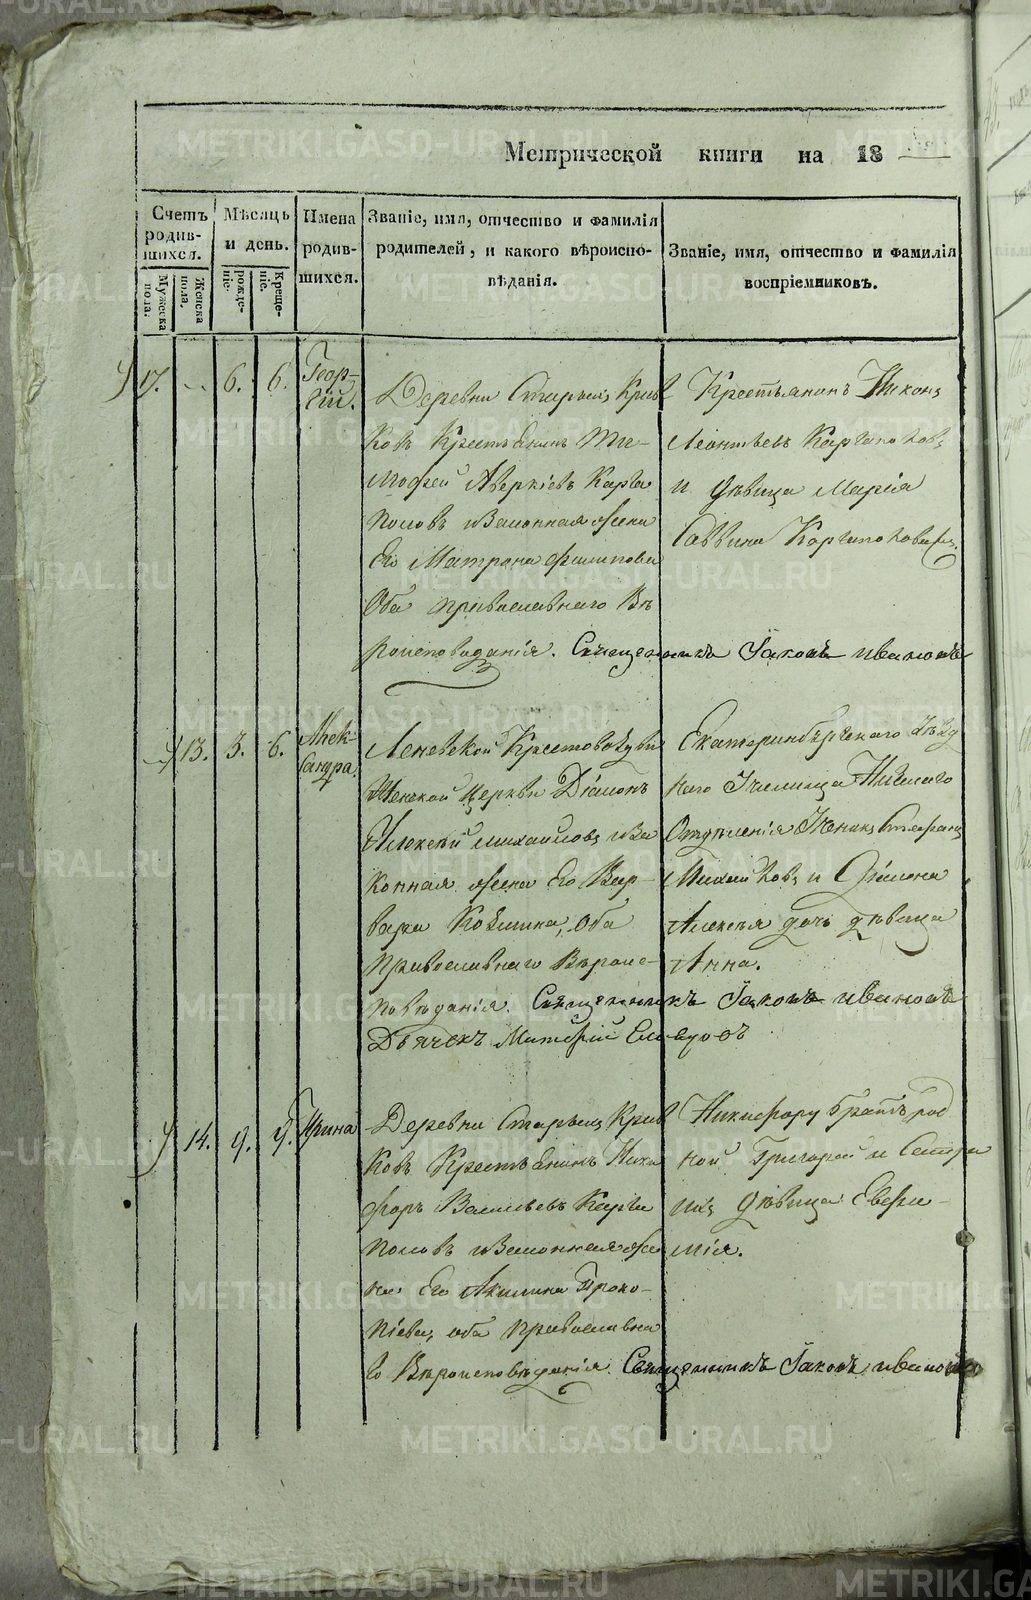 Метрической книги на 18
Счетъ родившихся.
Мужеска пола.
Женска пола.
Мѣсяцъ и день.
рожденіе.
Крещеніе.
Имена родившихся.
Званіе, имя, отчество и фамилія
родителей, и какого вѣроиспо-
вѣданія.
Званіе, имя, отчество и фамилія
воспріемниковъ.
17. 6. 6. Геор-
гій.
Деревни Старыхъ
ковъ Крестьянинъ Ти-
мофей Аверкіевъ Карга
половъ и Законная Жена
Его Матрона Филипова
Оба православнаго Вѣ
роисповѣданія. Священникъ Іаковъ Ивановъ
Крестьянинъ Никонъ
Леонтьевъ Каргаполовъ
и дѣвица Марія
Саввина Каргаполовыхъ.
13. 3. 6. Алек-
сандра.
Крестовоздви
женской Церкви Діаконъ
Алексѣй Михайловъ и За
конная Жена Его Вар-
вара Козмина, Оба
Православнаго Вѣроис-
повѣданія. Священникъ Іаковъ Ивановъ
Дьячекъ
Екатеринбургскаго Уѣзд
наго Училища Низшаго
Отдѣленія Ученикъ Стефанъ
и Діакона
Алексѣя дочь дѣвица
Анна.
14. 9. 9. Ирина
Деревни Старыхъ
ковъ Крестьянинъ Ники
форъ Васильевъ Карга
половъ и Законная Же
на Его Акилина Проко-
піева, оба Православна
го Вѣроисповѣданія. Священникъ Іаковъ Ивановъ
Никифору братъ род
ной Григорей и Сестра
ихъ дѣвица Евфи-
мія.
METRIKI.GASO-URAL.RU